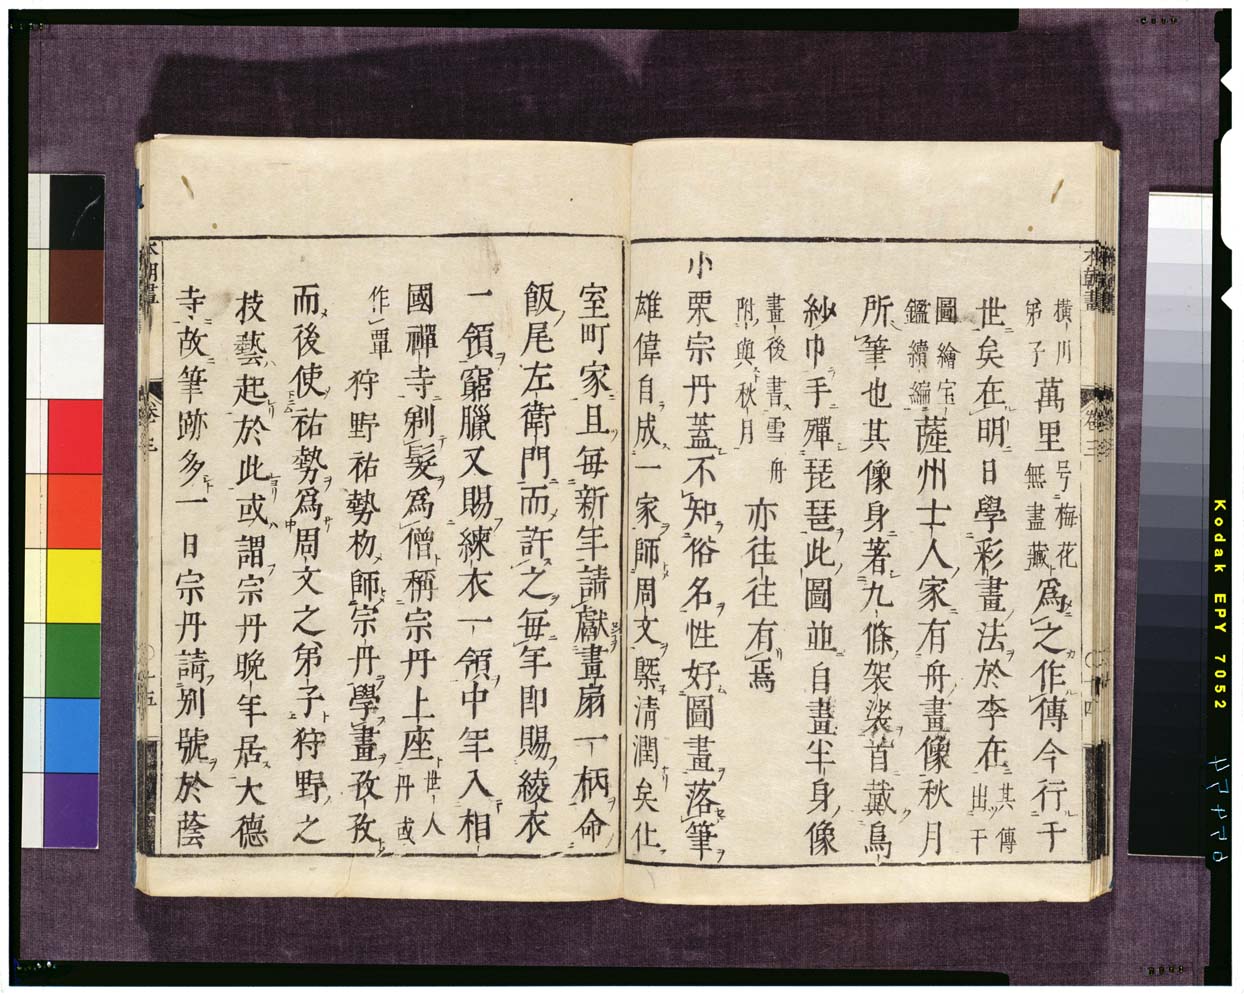 橫川弟子萬里号梅花無盡藏爲之作傳今行干
世矣在明日學彩畫法於李在其傳出干
圖繪宝鑑續編薩州士人家有舟畫像秋月
所筆也其像身著九條袈裟首戴烏
紗巾手彈琵琶此圖並自畫半身像
畫後書雪舟附與秋月亦往往有焉
小栗宗丹蓋不知俗名性好圖畫落筆
雄偉自成一家師周文槩清潤矣仕
室町家且每新年請獻畫扇一柄命
飯尾左衛門而許之每年即賜綾衣
一領窮臘又賜練衣一領中年入相
國禪寺剃髮爲僧稱宗丹上座世人丹或
作單狩野祐勢初師宗丹學畫孜孜
而後使祐勢爲周文之弟子狩野之
技藝起於此或謂宗丹晚年居大德
寺故筆跡多一日宗丹請别號於蔭
本朝畫
卷三
十五
本朝畫
卷三
Kodak EPY 7052